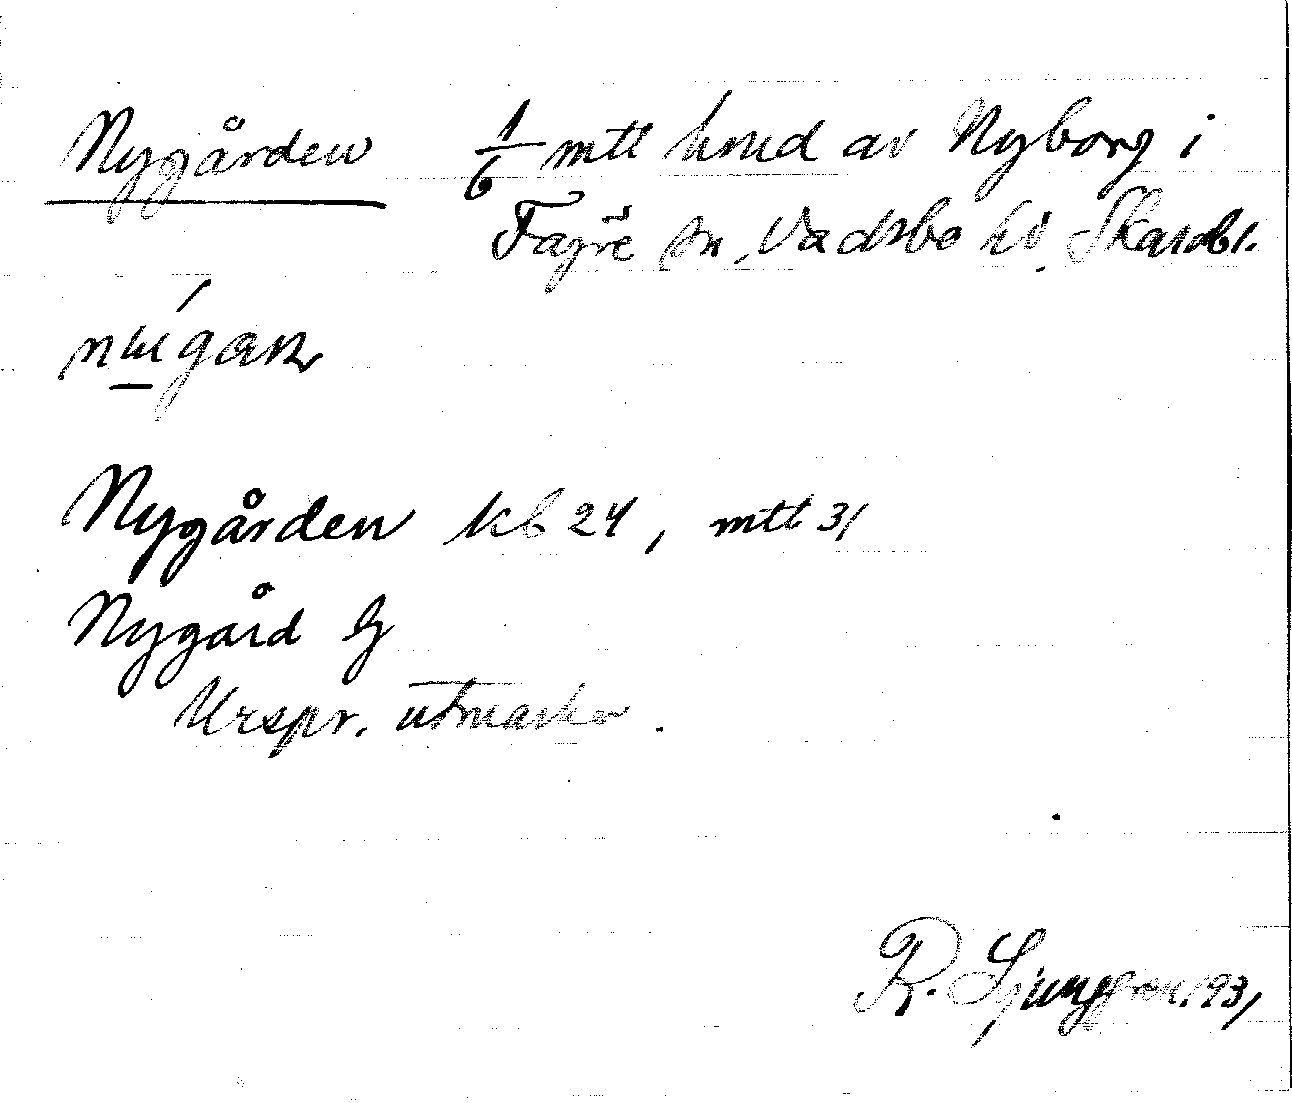 Nygården 1/6 mtl hmd av Nyborg i
Fägre sn, Vadsbo hd, Skarabl.
Nygården kb 24, mtl 31
Nygård Gj
Urspr. utmarker.
R. Ljunggren 1931